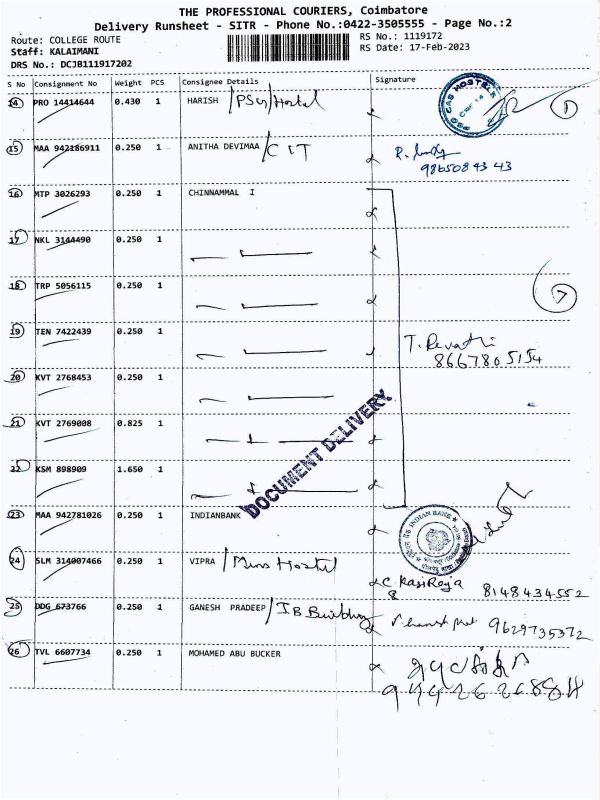 THE PROFESSIONAL COURIERS, Coimbatore
Delivery Runsheet - SITR - Phone No.:0422-3505555 - Page No.:2
Route: COLLEGE ROUTE
Staff: KALAIMANI
DRS No.: DCJB111917202
RS No.: 1119172
RS Date: 17-Feb-2023
S No Consignment No Weight PCS Consignee Details Signature
14 PRO 14414644 0.430 1 HARISH /PSG/Hostel
15 MAA 942186911 0.250 1 ANITHA DEVIMAA/CIT
9865084343
16 MTP 3026293 0.250 1 CHINNAMMAL I
17 NKL 3144490 0.250 1
18 TRP 5056115 0.250 1
19 TEN 7422439 0.250 1
T. Revathi
8667805154
20 KVT 2768453 0.250 1
21 KVT 2769008 0.825 1
22 KSM 898909 1.650 1
DOCUMENT DELIVERY
23 MAA 942781026 0.250 1 INDIANBANK
INDIAN BANK
24 SLM 314007466 0.250 1 VIPRA / Hostel
C. KasiRaja 8148434552
25 DDG 673766 0.250 1 GANESH PRADEEP/IB Building
9629735372
26 TVL 6607734 0.250 1 MOHAMED ABU BUCKER